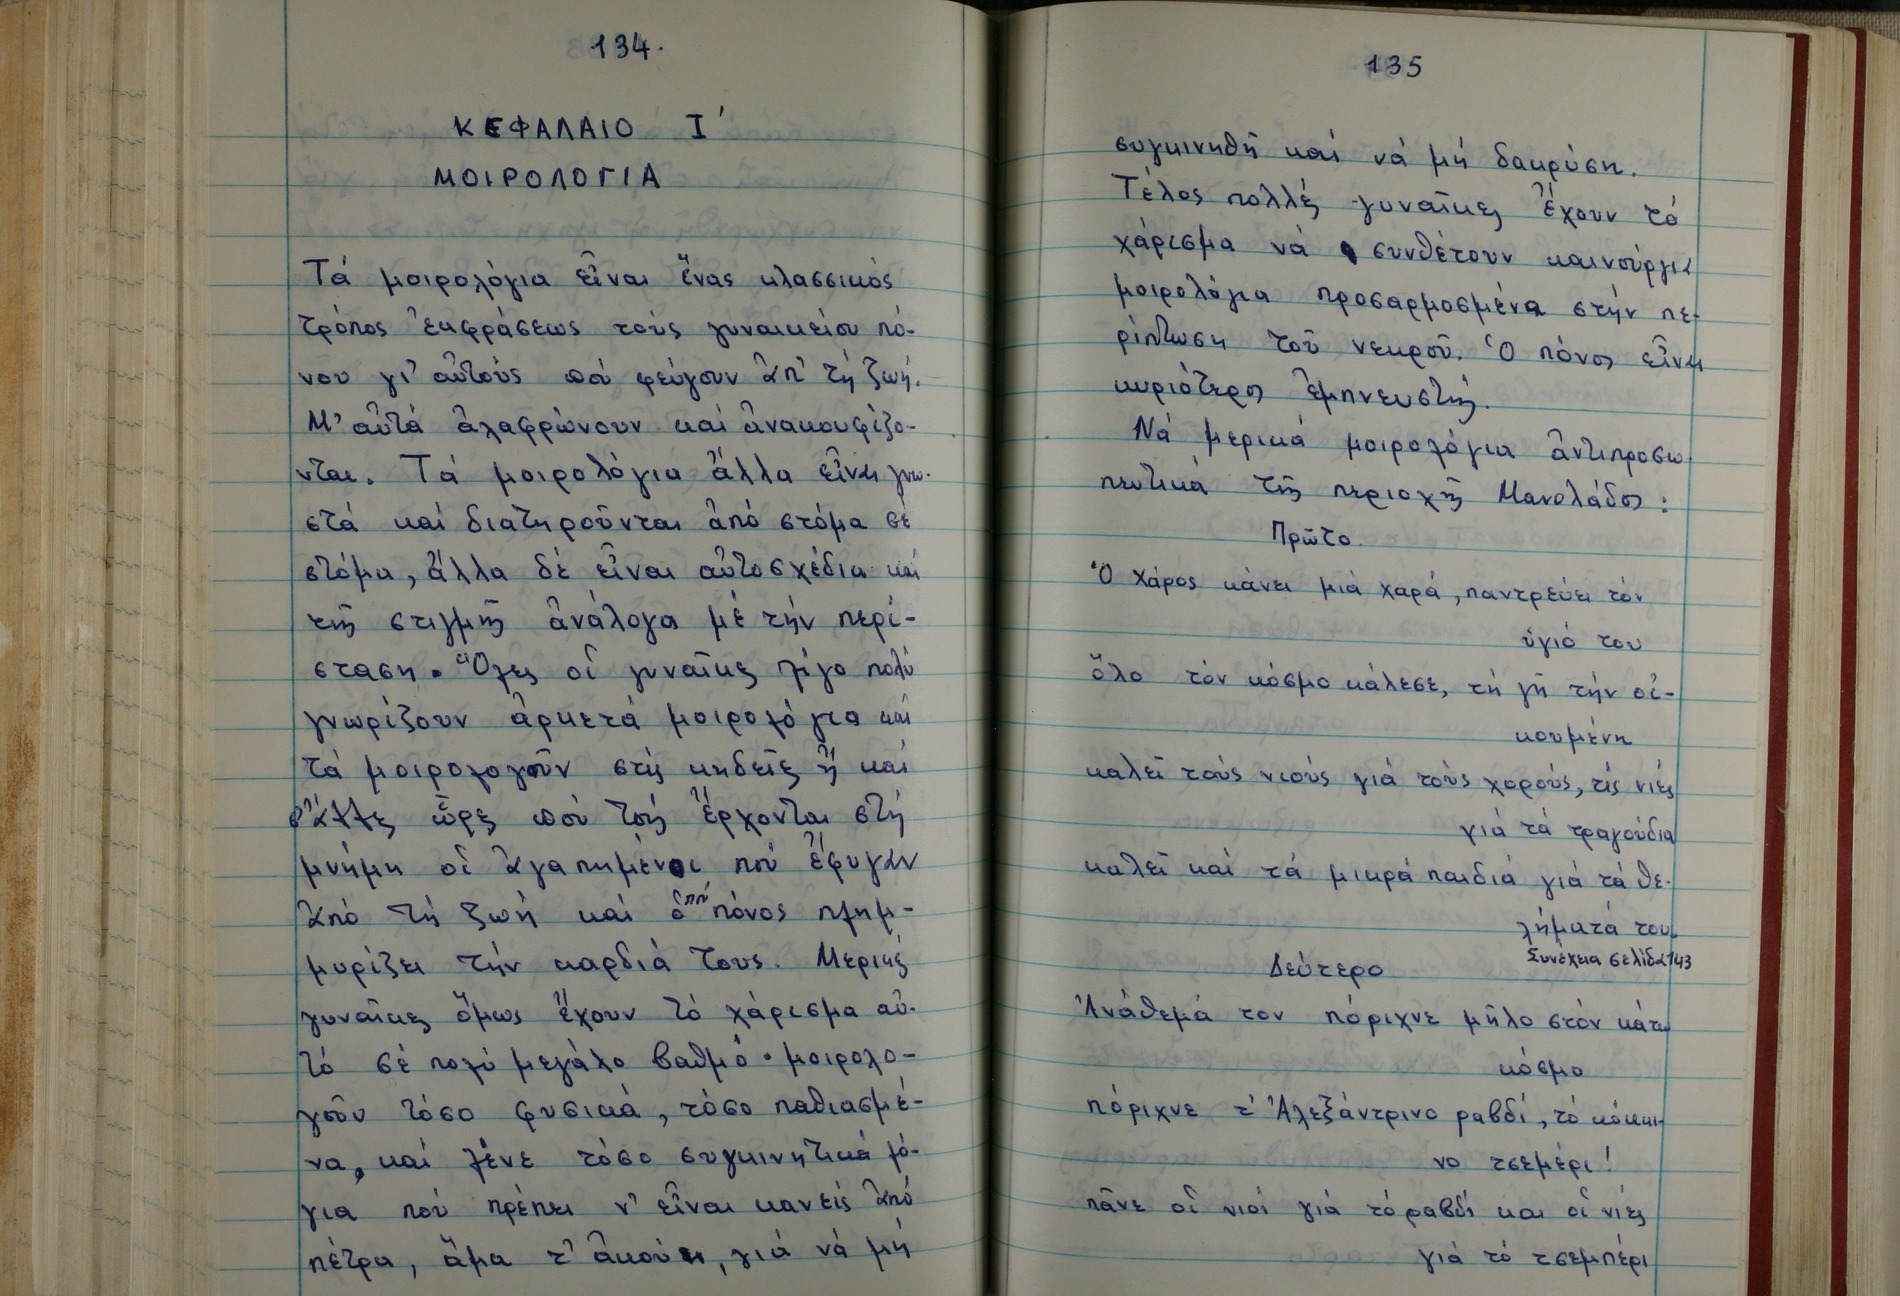 134.
ΚΕΦΑΛΑΙΟ Ι΄
ΜΟΙΡΟΛΟΓΙΑ
Τά μοιρολόγια εἶναι ἕνας κλασσικός
τρόπος ἐκφράσεως τούς γυναικείου πό-
νου γι' αὐτούς πού φεύγουν ἀπ' τή ζωή.
Μ' αὐτά ἀλαφρώνουν καί ἀνακουφίζο-
νται. Τά μοιρολόγια ἄλλα εἶναι γνω-
στά καί διατηροῦνται ἀπό στόμα σέ
στόμα, ἄλλα δέ εἶναι αὐτοσχέδια καί
τῆς στιγμῆς ἀνάλογα μέ τήν περί-
σταση. Ὅλες οἱ γυναῖκες λίγο πολύ
γνωρίζουν ἀρκετά μοιρολόγια καί
τά μοιρολογοῦν στίς κηδεῖες ἤ καί
ἄλλες ὧρες πού τούς ἔρχονται στή
μνήμη οἱ ἀγαπημένοι πού ἔφυγαν
ἀπό τή ζωή καί ὁ πόνος πλημ-
μυρίζει τήν καρδιά τους. Μερικές
γυναῖκες ὅμως ἔχουν τό χάρισμα αὐ-
τό σέ πολύ μεγάλο βαθμό· μοιρολο-
γοῦν τόσο φυσικά, τόσο παθιασμέ-
να, καί λένε τόσο συγκινητικά λό-
για πού πρέπει ν' εἶναι κανείς ἀπό
πέτρα, ἅμα τ' ἀκούει, γιά νά μή
135
συγκινηθῆ καί νά μή δακρύση.
Τέλος πολλές γυναῖκες ἔχουν τό
χάρισμα νά συνθέτουν καινούργια
μοιρολόγια προσαρμοσμένα στήν πε-
ρίπτωση τοῦ νεκροῦ. Ὁ πόνος εἶναι
κυριότερος ἐμπνευστής.
Νά μερικά μοιρολόγια ἀντιπροσω
πευτικά τῆς περιοχῆς Μανολάδος:
Πρῶτο.
Ὁ Χάρος κάνει μιά χαρά, παντρεύει τόν
ὑγιό του
ὅλο τόν κόσμο κάλεσε, τή γῆ τήν οἰ-
κουμένη
καλεῖ τούς νιούς γιά τούς χορούς, τίς νιές
γιά τά τραγούδια
καλεῖ καί τά μικρά παιδιά γιά τά θε-
λήματά του.
Συνέχεια σελίδα 143
Δεύτερο
Ἀνάθεμά τον πόριχνε μῆλο στόν κάτω
κόσμο
πόριχνε τ' Ἀλεξάντρινο ραβδί, τό κόκκι-
νο τσεμέρι!
πᾶνε οἱ νιοί γιά τό ραβδί και οἱ νιές
γιά τό τσεμπέρι